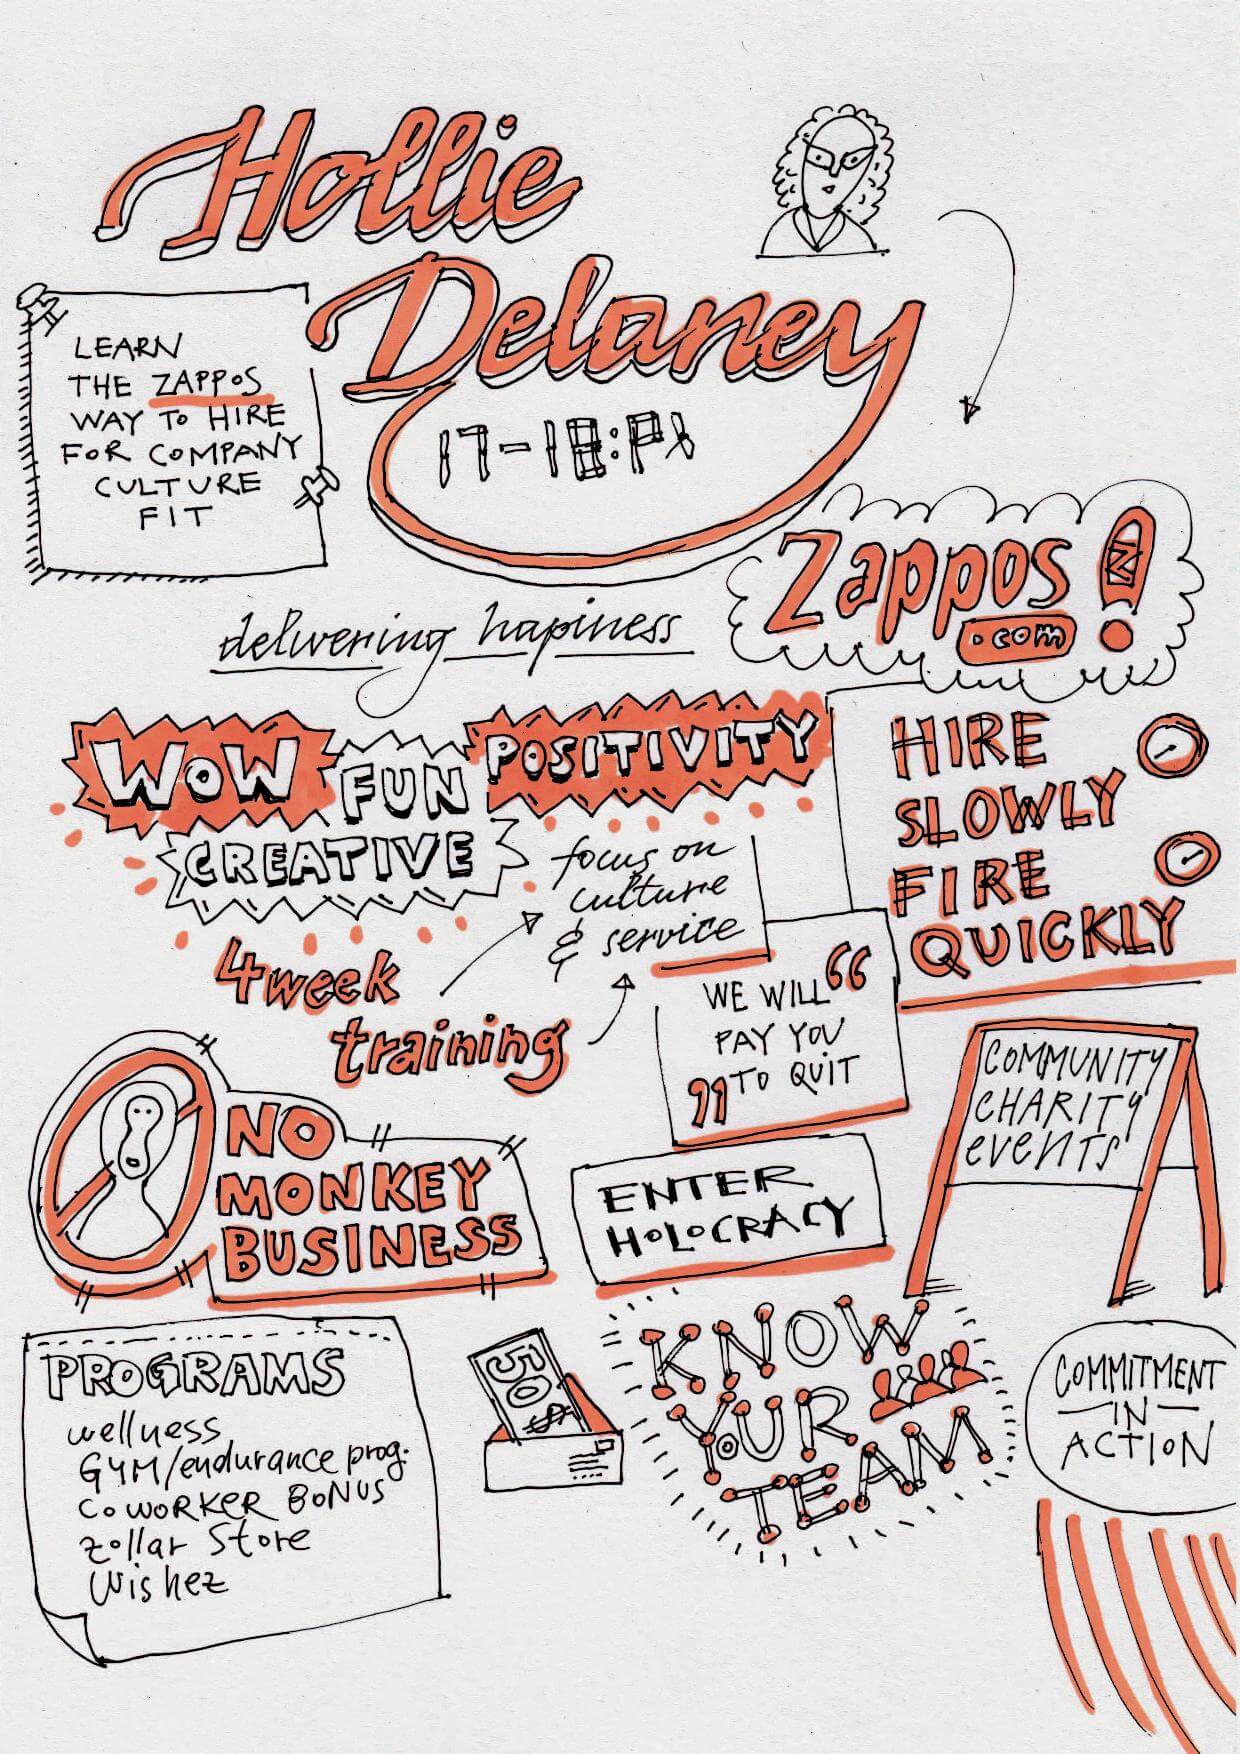 Hollie
Delaney
LEARN
THE ZAPPOS
WAY TO HIRE
FOR COMPANY
CULTURE
FIT
Zappos
.com
delivering hapiness
WOW
FUN
POSITIVITY
CREATIVE
HIRE
SLOWLY
FIRE
QUICKLY
focus on
culture
& service
4 week
training
WE WILL “
PAY YOU
” TO QUIT
COMMUNITY
CHARITY
events
NO
MONKEY
BUSINESS
ENTER
HOLOCRACY
PROGRAMS
wellness
GYM/endurance prog.
COWORKER BONUS
zollar Store
Wishez
50$
KNOW
YOUR
TEAM
COMMITMENT
IN
ACTION